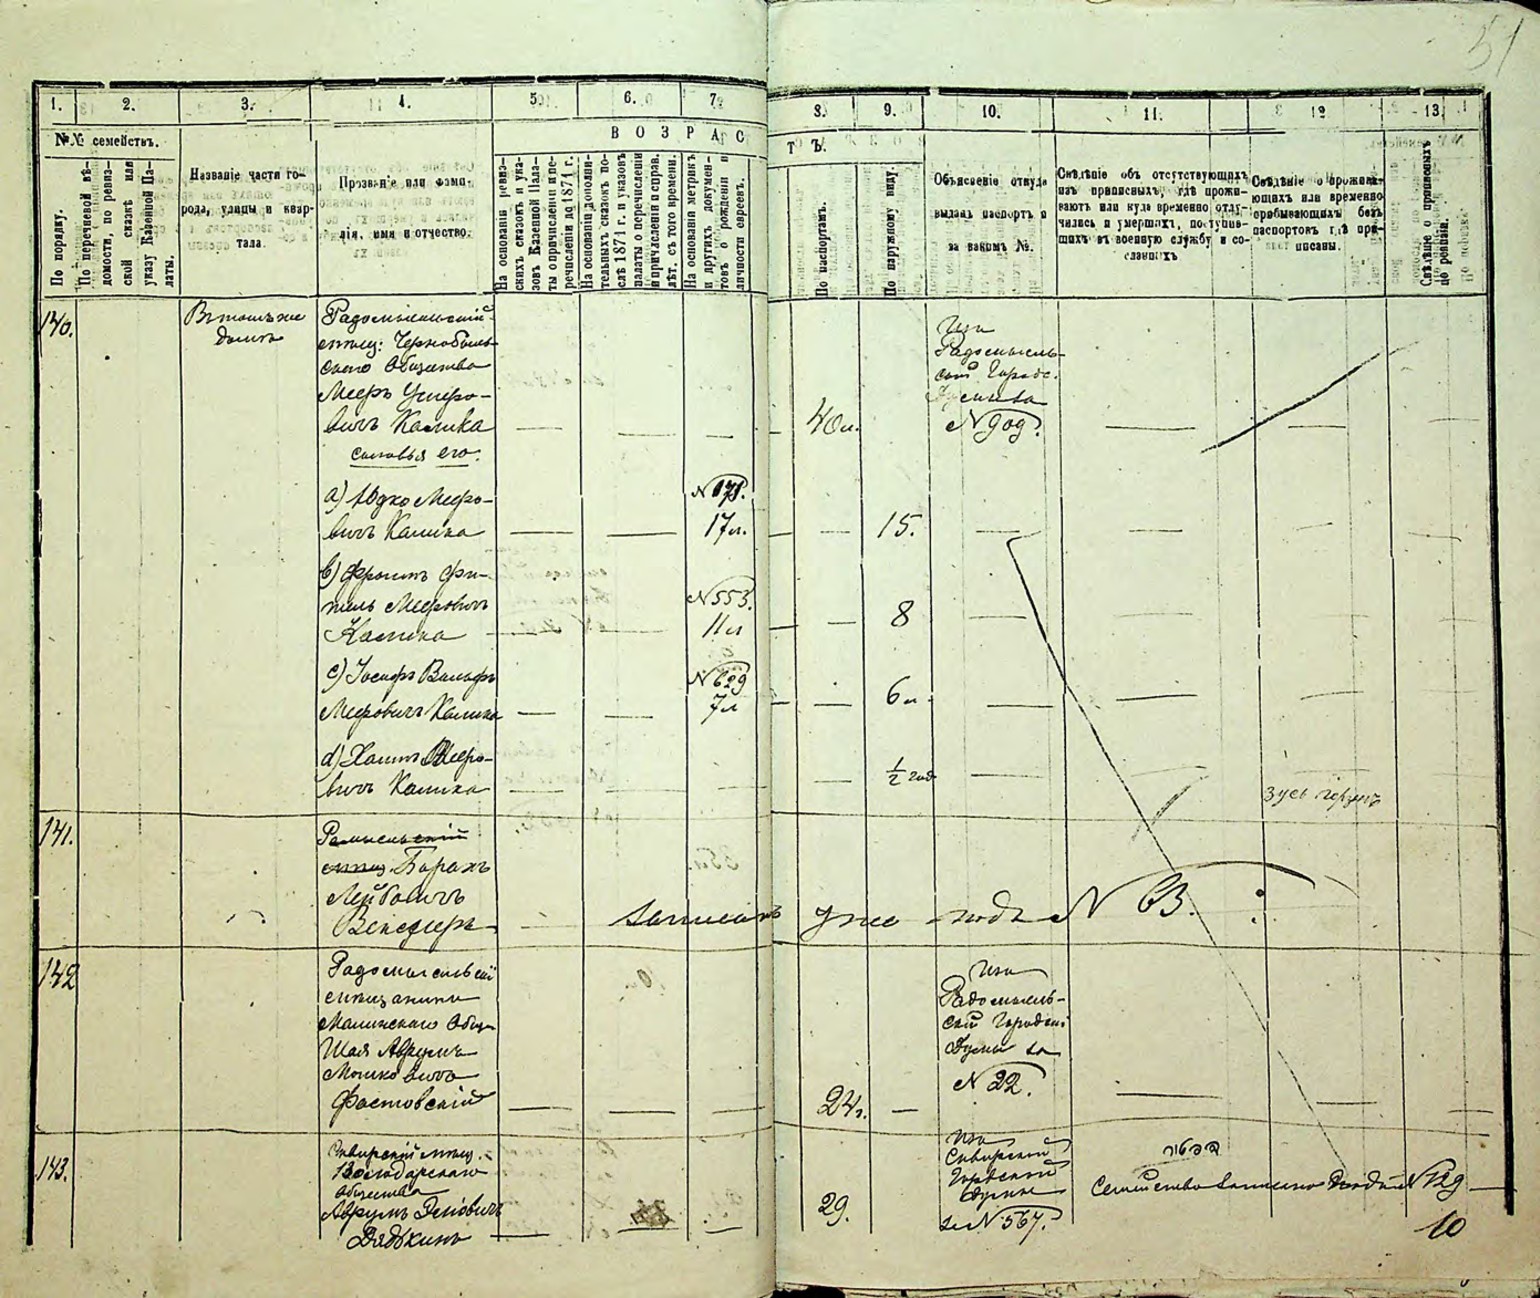 51
1. 2. 3. 4. 5. 6. 7. 8. 9. 10. 11. 12 13.
№№ семействъ.
ВОЗРАСТЪ.
По порядку.
По перечневой вѣ-
домости, по ревиз-
ской сказкѣ или
указу Казенной Па-
латы.
Названіе части го-
рода, улицы и квар-
тала.
Прозваніе или фами-
лія, имя и отчество.
На основаніи ревиз-
скихъ сказокъ и ука-
зовъ Казенной Пала-
ты о причисленіи и пе-
речисленіи до 1871 г.
На основаніи дополни-
тельныхъ сказокъ по-
слѣ 1871 г. и указовъ
палаты о перечисленіи
и причисленіи и справ.
лѣт. съ того времени.
На основаніи метрикъ
и другихъ докумен-
товъ о рожденіи и
личности евреевъ.
По паспортамъ.
По наружному виду.
Объясненіе откуда
выданъ паспортъ и
за какимъ №.
Свѣдѣніе объ отсутствующихъ
изъ приписныхъ, гдѣ прожи-
ваютъ или куда временно отлу-
чились и умершихъ, поступив-
шихъ въ военную службу и со-
сланныхъ
Свѣдѣніе о прожива-
ющихъ или временно
пребывающихъ безъ
паспортовъ гдѣ при-
писаны.
Свѣдѣніе о приписныхъ
по ревизіи.
140.
Въ томъ же
домѣ
Радомысльскій
мѣщ: Чернобыль-
скаго Общества
Мееръ Усеро-
вичъ Калика
40 л.
Изъ
Радомысль-
ской Городс.
Думы за
№ 909.
сыновья его:
a) Юдко Мееро-
вичъ Калика
17 л.
15.
b)
Меровичъ
Калика
№ 553.
11 л
8
c) Іосифъ Вольфъ
Меровичъ Калика
№ 629
7 л
6 л.
d) Хаимъ Меро-
вичъ Калика
½ год
141.
Борахъ
Лейбовичъ
записанъ уже подъ № 63.
142
Радомысльскій
мѣщанинъ
Малинскаго Общ
Шая Аврумъ
Мошковичъ
Фастовскій
24 г.
Изъ
Радомысль-
ской Городской
Думы за
№ 22.
143.
Сквирскій мѣщ.
Володарскаго
Общества
Аврумъ
Дядькинъ
29.
Изъ
Сквирской
Городской
Думы
за № 567.
Семейство записано № 129
10